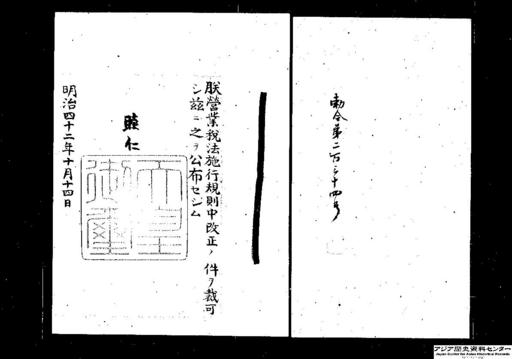 勅令第二百三十四号
朕營業税法施行規則中改正ノ件ヲ裁可
シ茲ニ之ヲ公布セシム
睦仁
天皇御璽
明治四十二年十月十四日
アジア歴史資料センター
Japan Center for Asian Historical Records